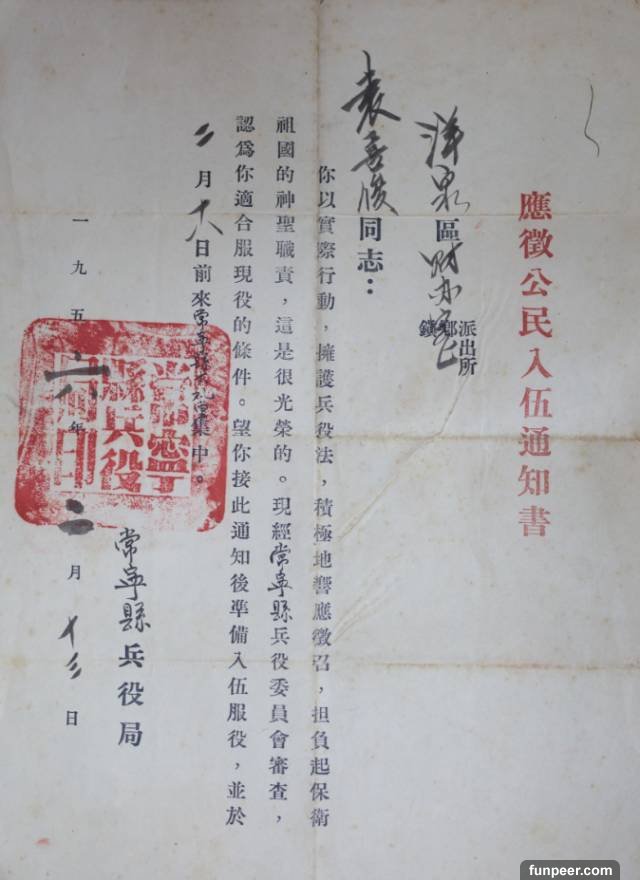 應徵公民入伍通知書
洋泉區財 鄉鎮派出所
袁善俊同志：
你以實際行動，擁護兵役法，積極地響應徵召，担負起保衛
祖國的神聖職責，這是很光榮的。現經常寧縣兵役委員會審查，
認爲你適合服現役的條件。望你接此通知後準備入伍服役，並於
二月十八日前來常寧 集中。
常寧縣兵役局
一九五六年二月十三日
常寧縣兵役局印
funpeer.com